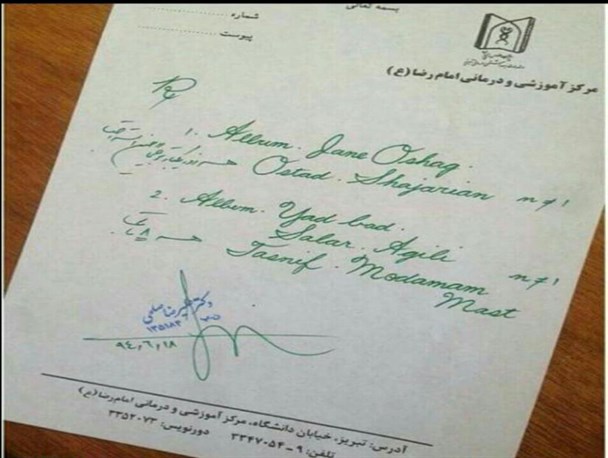 بسمه تعالی
شماره
پیوست
مرکز آموزشی و درمانی امام رضا (ع)
Rx
1. Album. Jane Oshaq.
Ostad. Shajarian n≠1
2. Album. Yad bad.
Salar. Aqili n≠1
Tasnif. Modamam
Mast
دکتر علیرضا
۱۳۵۱۸۲
۹۴,۶,۱۸
آدرس: تبریز، خیابان دانشگاه، مرکز آموزشی و درمانی امام رضا (ع)
تلفن: ۹-۳۳۴۷۰۵۴ دورنویس: ۳۳۵۲۰۷۳